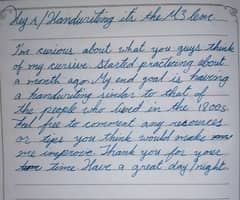 Hey r/Handwriting it's the M3 lemc.
I'm curious about what you guys think
of my cursive. Started practicing about
a month ago. My end goal is having
a handwriting similar to that of
the people who lived in the 1800s.
Feel free to comment any resources
or tips you think would make
me improve. Thank you for your
time. Have a great day/night.